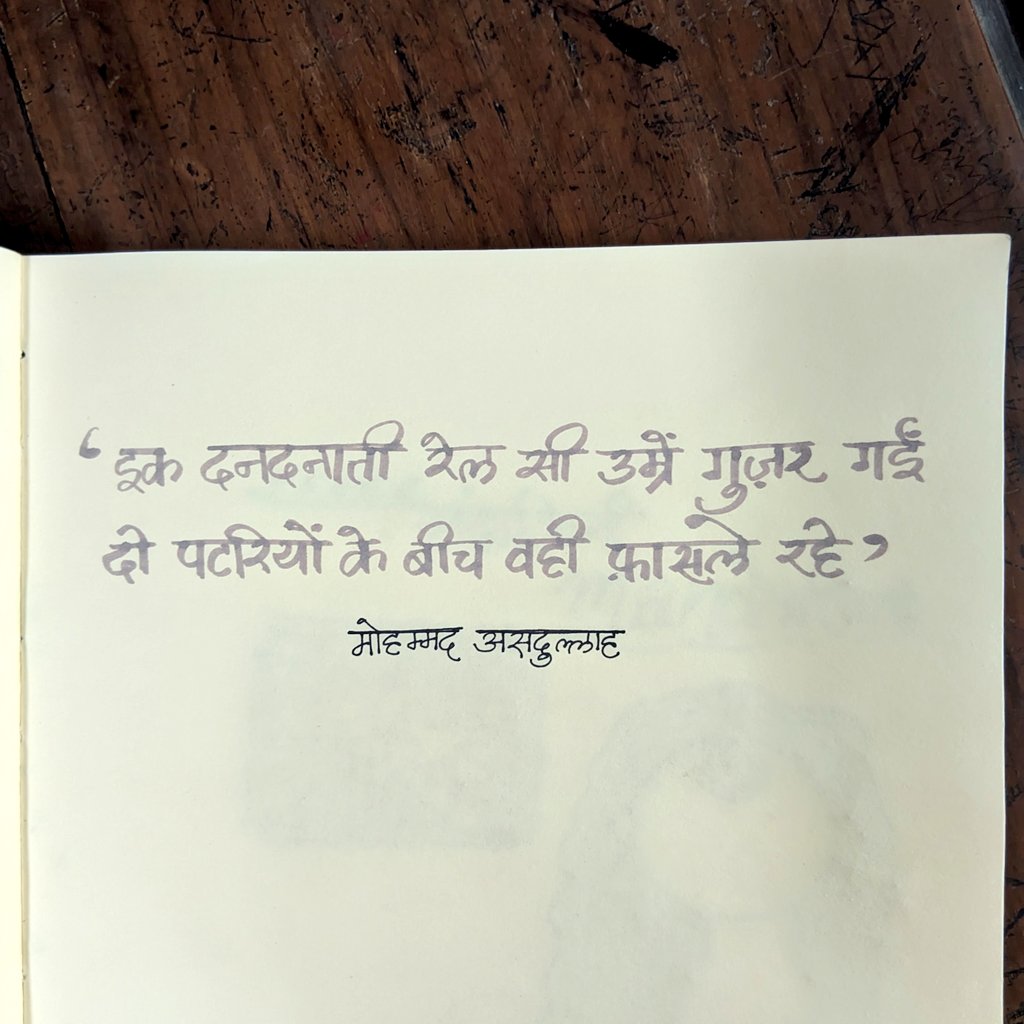 ‘इक दनदनाती रेल सी उम्रें गुज़र गईं
दो पटरियों के बीच वही फ़ासले रहे’
मोहम्मद असदुल्लाह